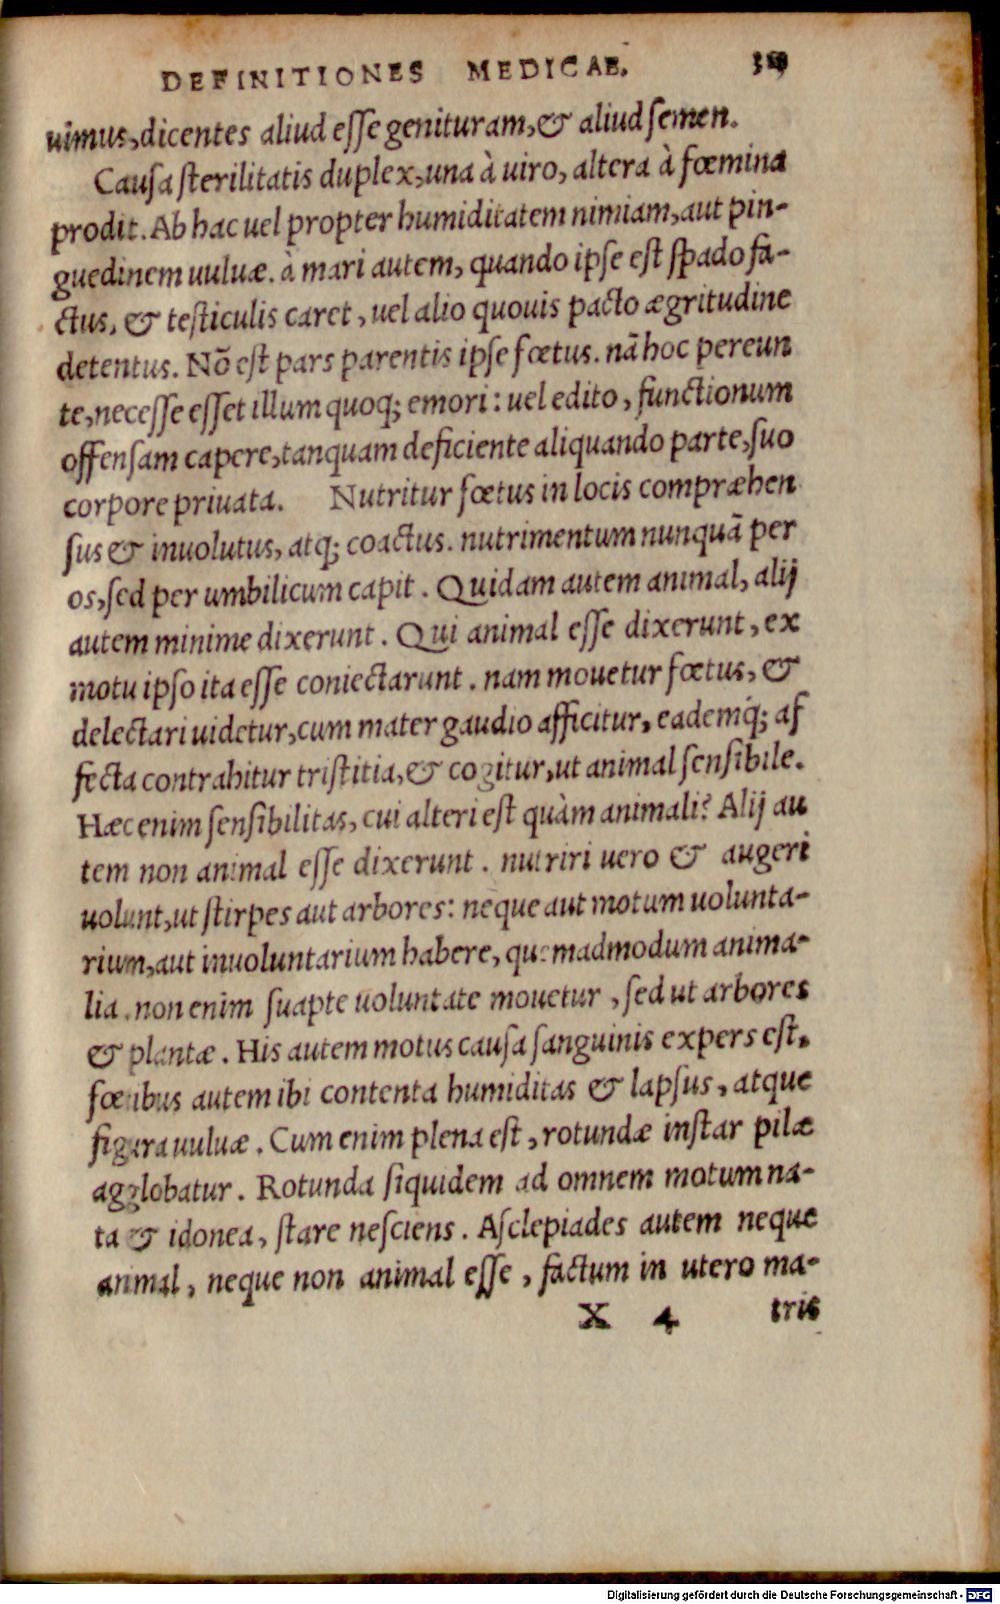 DEFINITIONES MEDICAE.
uimus, dicentes aliud esse genituram, & aliud semen.
Causa sterilitatis duplex, una à uiro, altera à fœmina
prodit. Ab hac uel propter humiditatem nimiam, aut pin-
guedinem uuluæ. à mari autem, quando ipse est spado fa-
ctus, & testiculis caret, uel alio quouis pacto ægritudine
detentus. Nõ est pars parentis ipse fœtus. nã hoc pereun
te, necesse esset illum quoq; emori: uel edito, functionum
offensam capere, tanquam deficiente aliquando parte, suo
corpore priuata. Nutritur fœtus in locis compræhen
sus & inuolutus, atq; coactus. nutrimentum nunquã per
os, sed per umbilicum capit. Quidam autem animal, alij
autem minime dixerunt. Qui animal esse dixerunt, ex
motu ipso ita esse coniectarunt. nam mouetur fœtus, &
delectari uidetur, cum mater gaudio afficitur, eademq́; af
fecta contrahitur tristitia, & cogitur, ut animal sensibile.
Hæc enim sensibilitas, cui alteri est quàm animali? Alij au
tem non animal esse dixerunt. nutriri uero & augeri
uolunt, ut stirpes aut arbores: neque aut motum uolunta-
rium, aut inuoluntarium habere, quemadmodum anima-
lia. non enim suapte uoluntate mouetur, sed ut arbores
& plantæ. His autem motus causa sanguinis expers est.
fœtibus autem ibi contenta humiditas & lapsus, atque
figura uuluæ. Cum enim plena est, rotundæ instar pilæ
agglobatur. Rotunda siquidem ad omnem motum na-
ta & idonea, stare nesciens. Asclepiades autem neque
animal, neque non animal esse, factum in utero ma-
X 4 tris
Digitalisierung gefördert durch die Deutsche Forschungsgemeinschaft - DFG